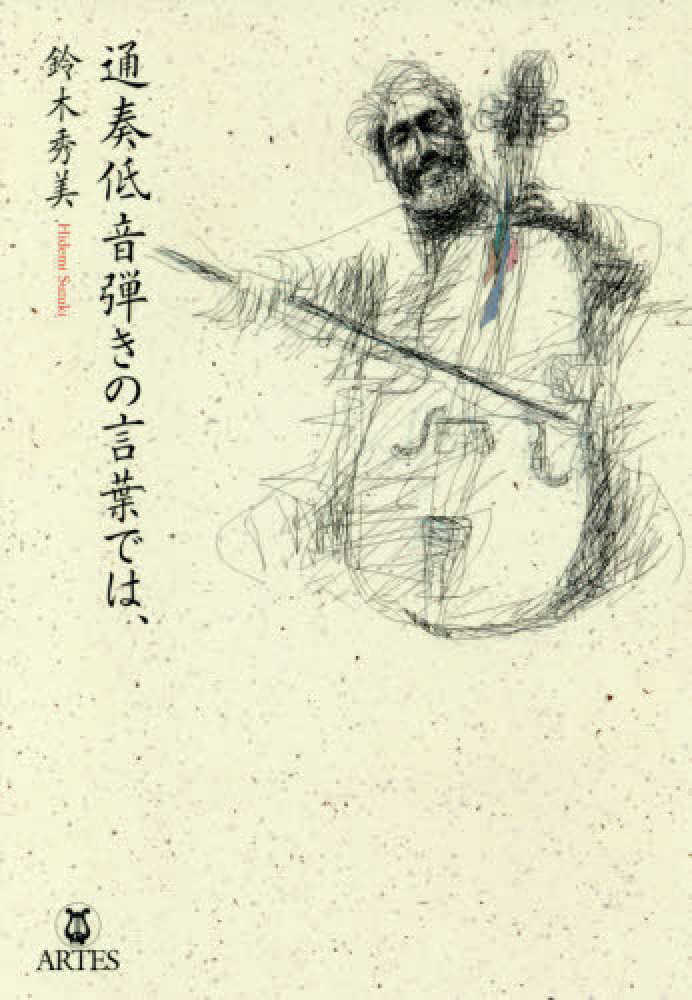 通奏低音弾きの言葉では、
鈴木秀美
Hidemi Suzuki
ARTES